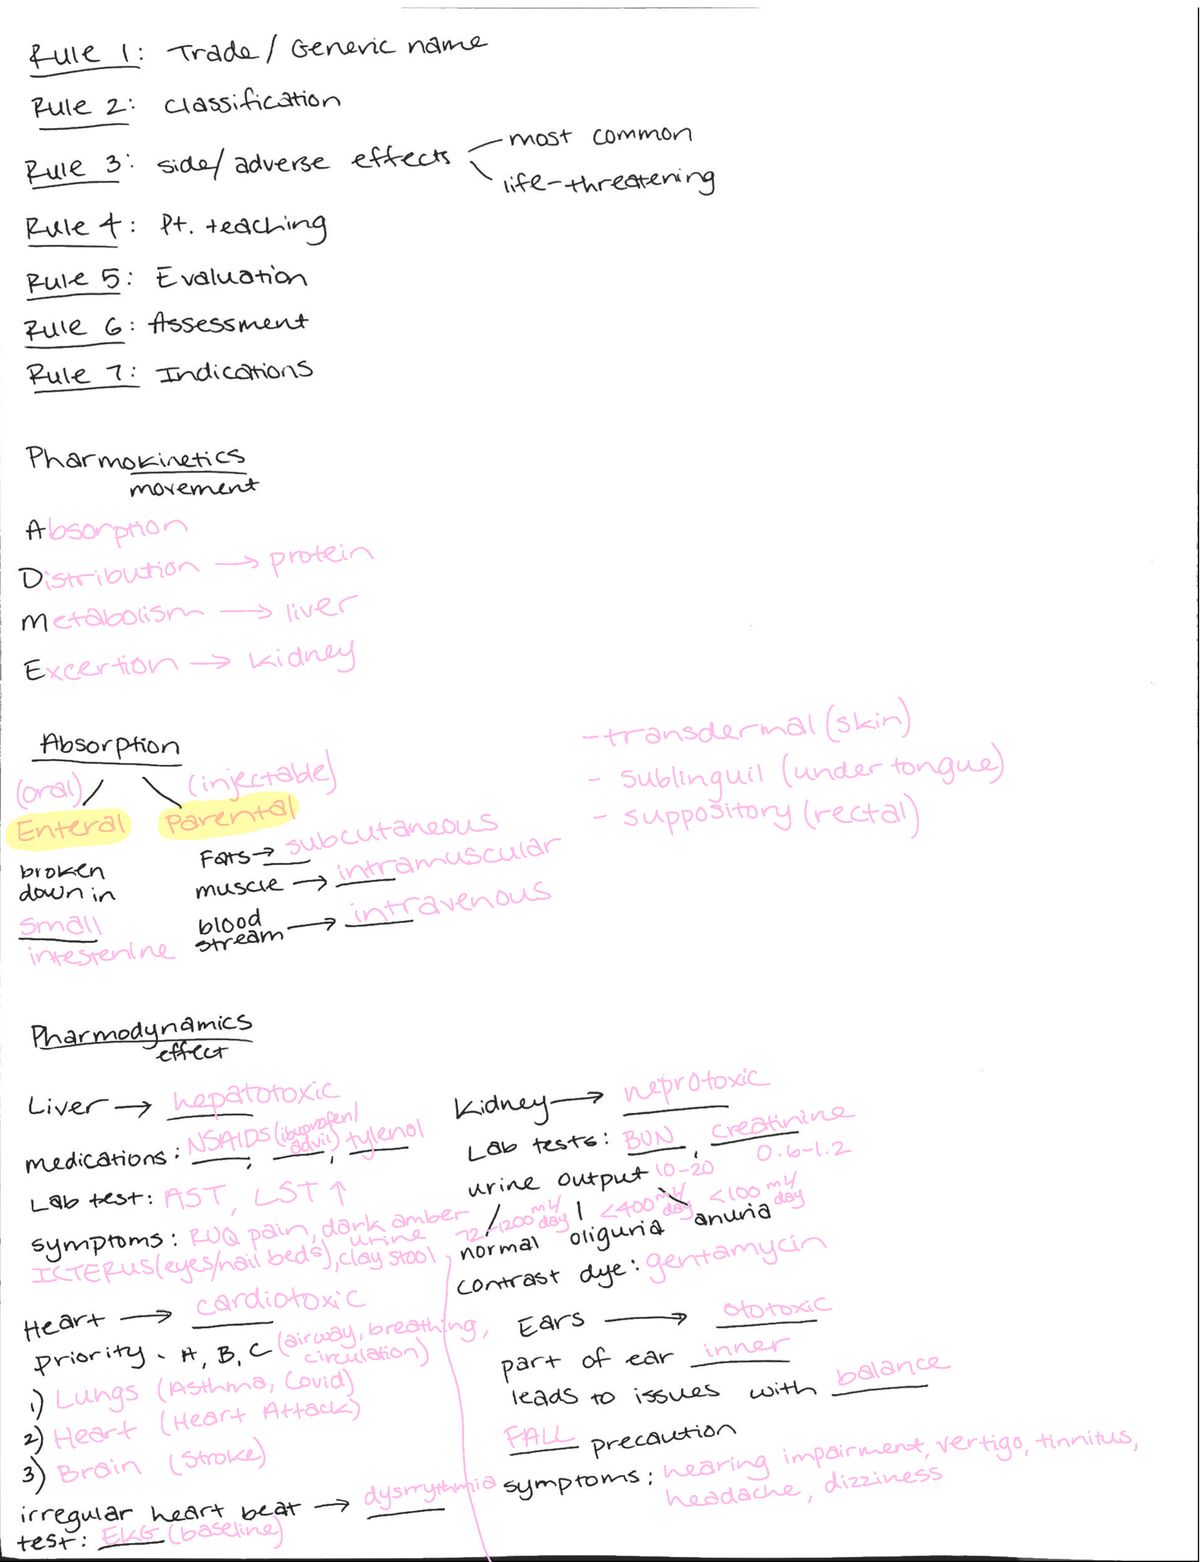 Rule 1: Trade/Generic name
Rule 2: classification
Rule 3: side/adverse effects
most common
life-threatening
Rule 4: Pt. teaching
Rule 5: Evaluation
Rule 6: Assessment
Rule 7: Indications
Pharmokinetics
movement
Absorption
Distribution → protein
Metabolism → liver
Excertion → kidney
Absorption
(oral) (injectable)
Enteral Parental
broken
down in
small
intestenine
Fats → subcutaneous
muscle → intramuscular
blood
stream → intravenous
- transdermal (skin)
- sublinguil (under tongue)
- suppository (rectal)
Pharmodynamics
effect
Liver → hepatotoxic
medications: NSAIDS (ibuprofen/
advil), tylenol
Lab test: AST, LST ↑
symptoms: RUQ pain, dark amber
urine
ICTERUS (eyes/nail beds), clay stool
Kidney → neprotoxic
Lab tests: BUN, creatinine
10-20 0.6-1.2
urine output
<400 mL/day <100 mL/day
normal oliguria anuria
contrast dye: gentamycin
Heart → cardiotoxic
priority - A, B, C (airway, breathing,
circulation)
1) Lungs (Asthma, Covid)
2) Heart (Heart Attack)
3) Brain (Stroke)
irregular heart beat → dysrrythmia
test: EKG (baseline)
Ears → ototoxic
part of ear inner
leads to issues with balance
FALL precaution
symptoms: hearing impairment, vertigo, tinnitus,
headache, dizziness